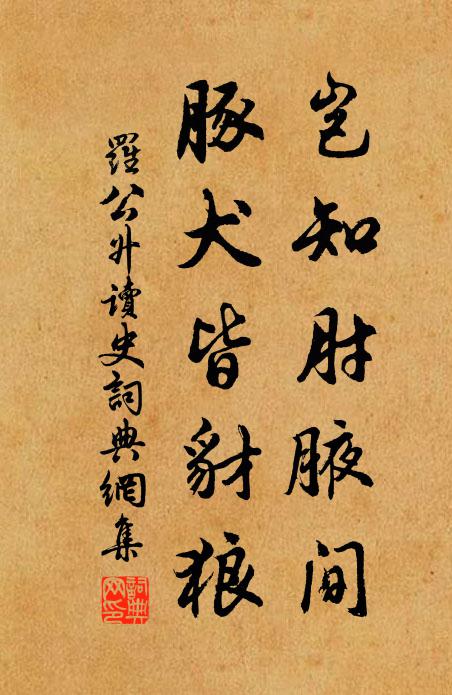 豈知肘腋間
豚犬皆豺狼
羅公升讀史詞典網集
詞典
网印